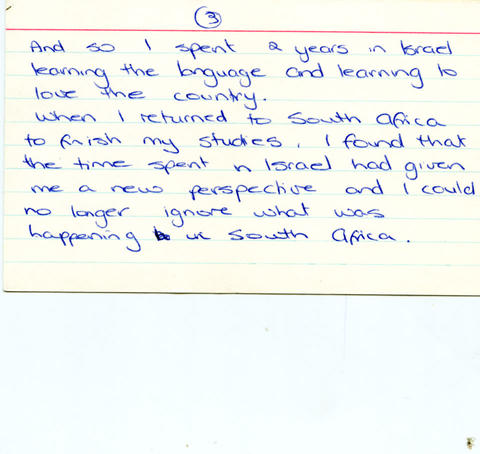 3
And so I spent 2 years in Israel
learning the language and learning to
love the country.
When I returned to South Africa
to finish my studies, I found that
the time spent in Israel had given
me a new perspective and I could
no longer ignore what was
happening in South Africa.